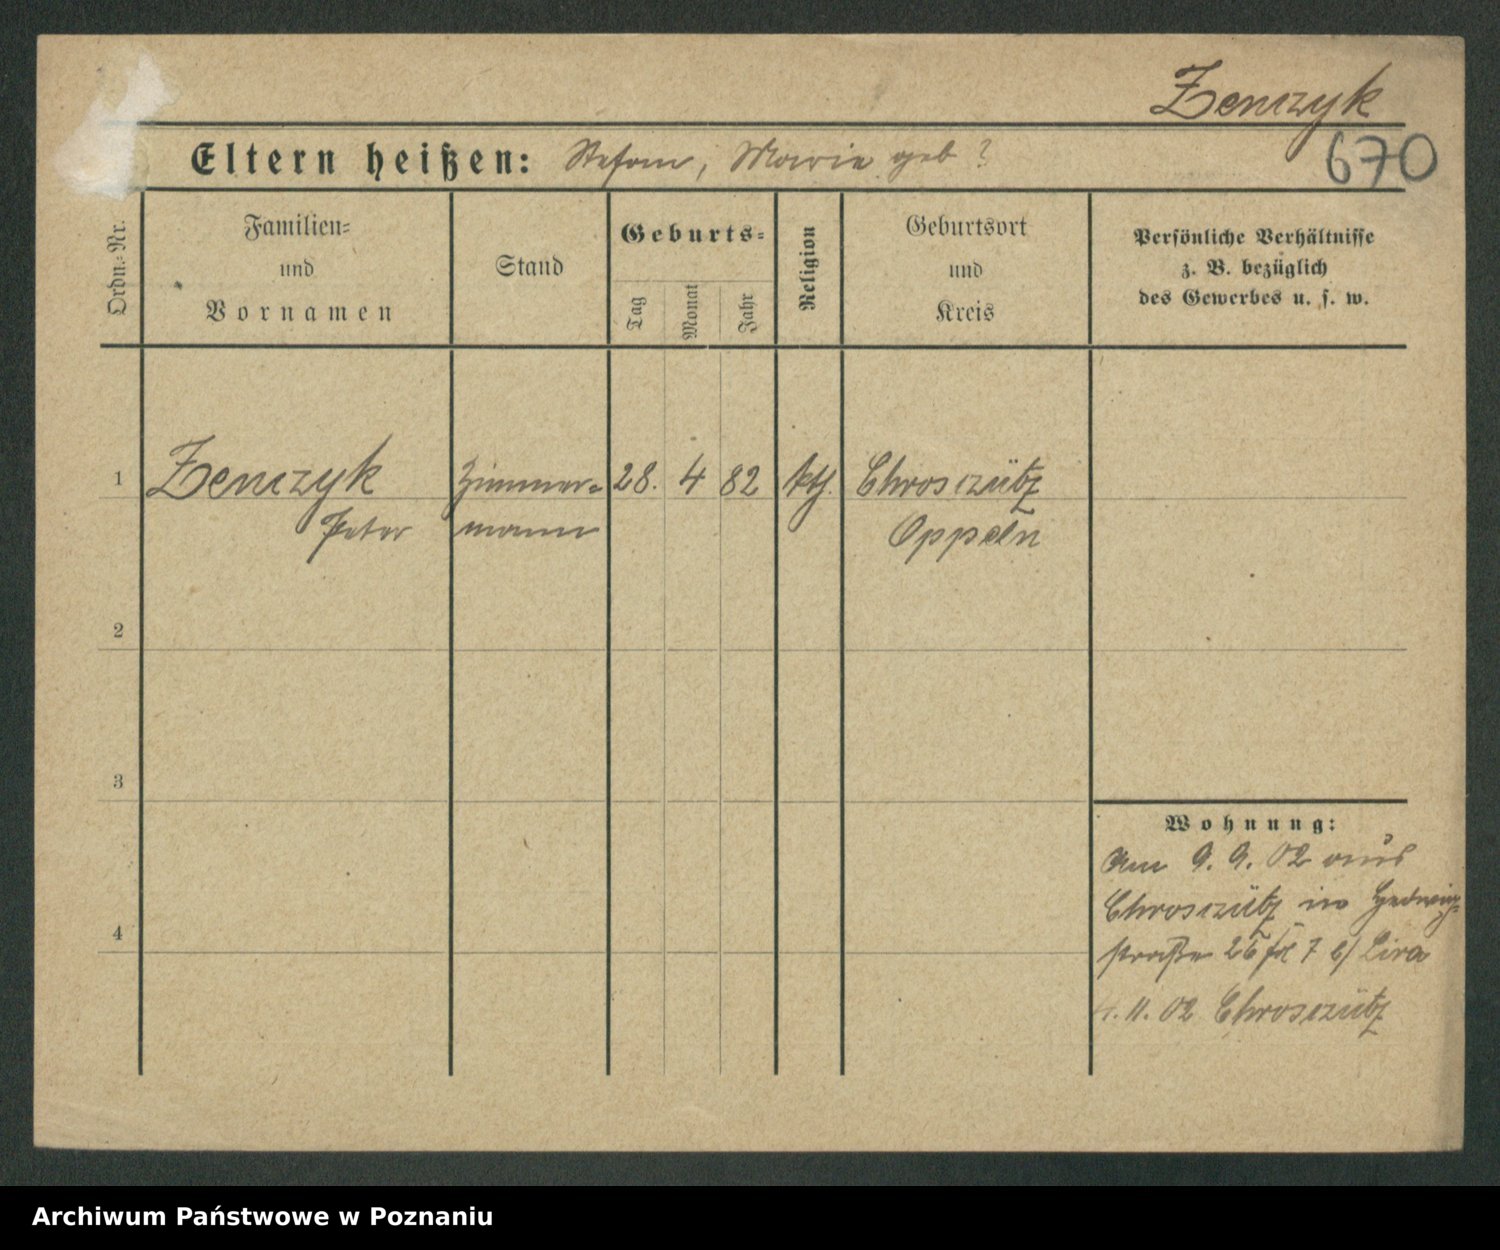 Zenczyk
670
Eltern heißen: Stefan, Marie geb ?
Ordn.-Nr.
Familien-
und
Vornamen
Stand
Geburts-
Tag
Monat
Jahr
Religion
Geburtsort
und
Kreis
Persönliche Verhältnisse
z. B. bezüglich
des Gewerbes u. s. w.
1 Zenczyk Zimmer- 28. 4 82 kth. Chrosczütz
Peter mann Oppeln
2
3
4
Wohnung:
Am 9. 9. 02 aus
Chrosczütz in Hedwig-
straße 25 7 b/ Lira
11. 02 Chrosczütz
Archiwum Państwowe w Poznaniu